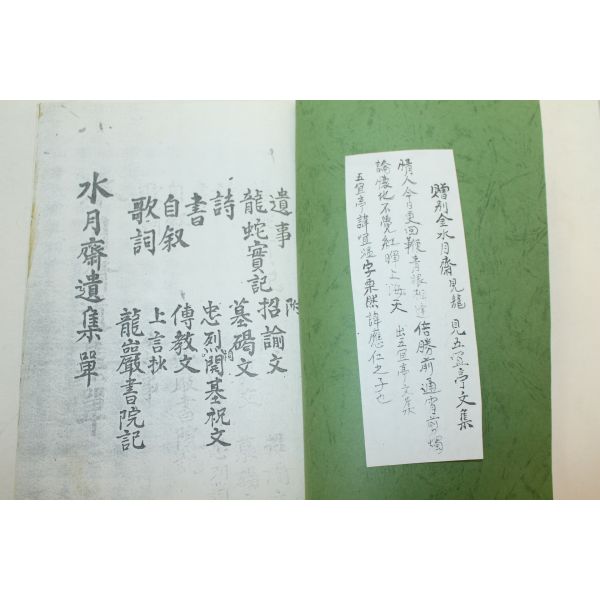 贈別金水月齋見龍 見五宜亭文集
情人今日更回鞭 青眼 倍勝前 通宵前燭
論懷地 不覺紅暉上海天 出五宜亭文集
五宜亭諱 字 諱應仁之子也
附
遺事 招諭文
龍蛇實記 墓碣文
詩 忠烈閣開基祝文
書 傳教文
自叙 上言抄
歌詞 龍巖書院記
水月齋遺集單